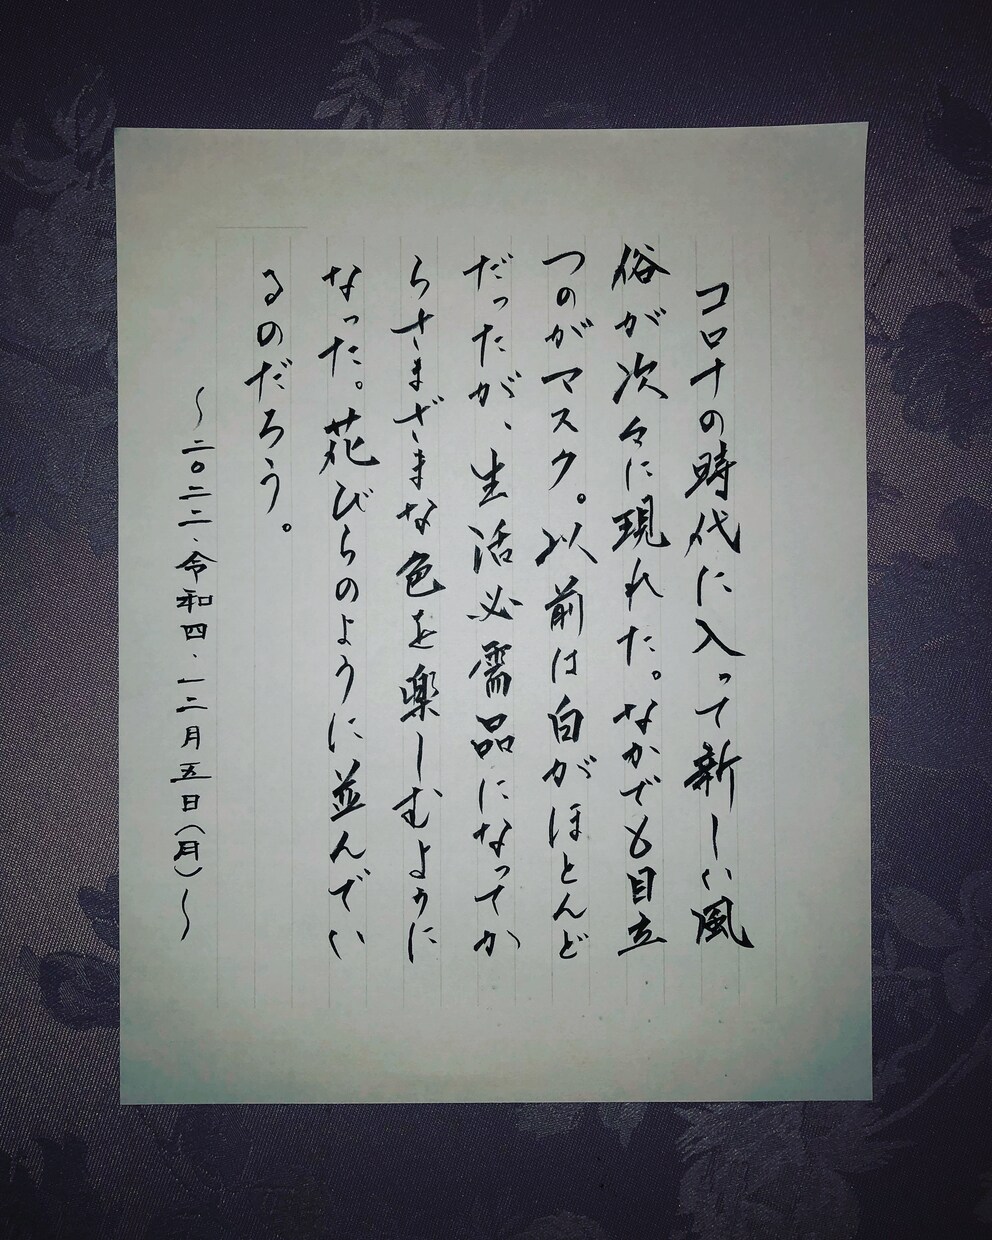 コロナの時代に入って新しい風
俗が次々に現れた。なかでも目立
つのがマスク。以前は白がほとんど
だったが、生活必需品になってか
らさまざまな色を楽しむように
なった。花びらのように並んでい
るのだろう。
〜二〇二二、令和四、一二月五日(月)〜